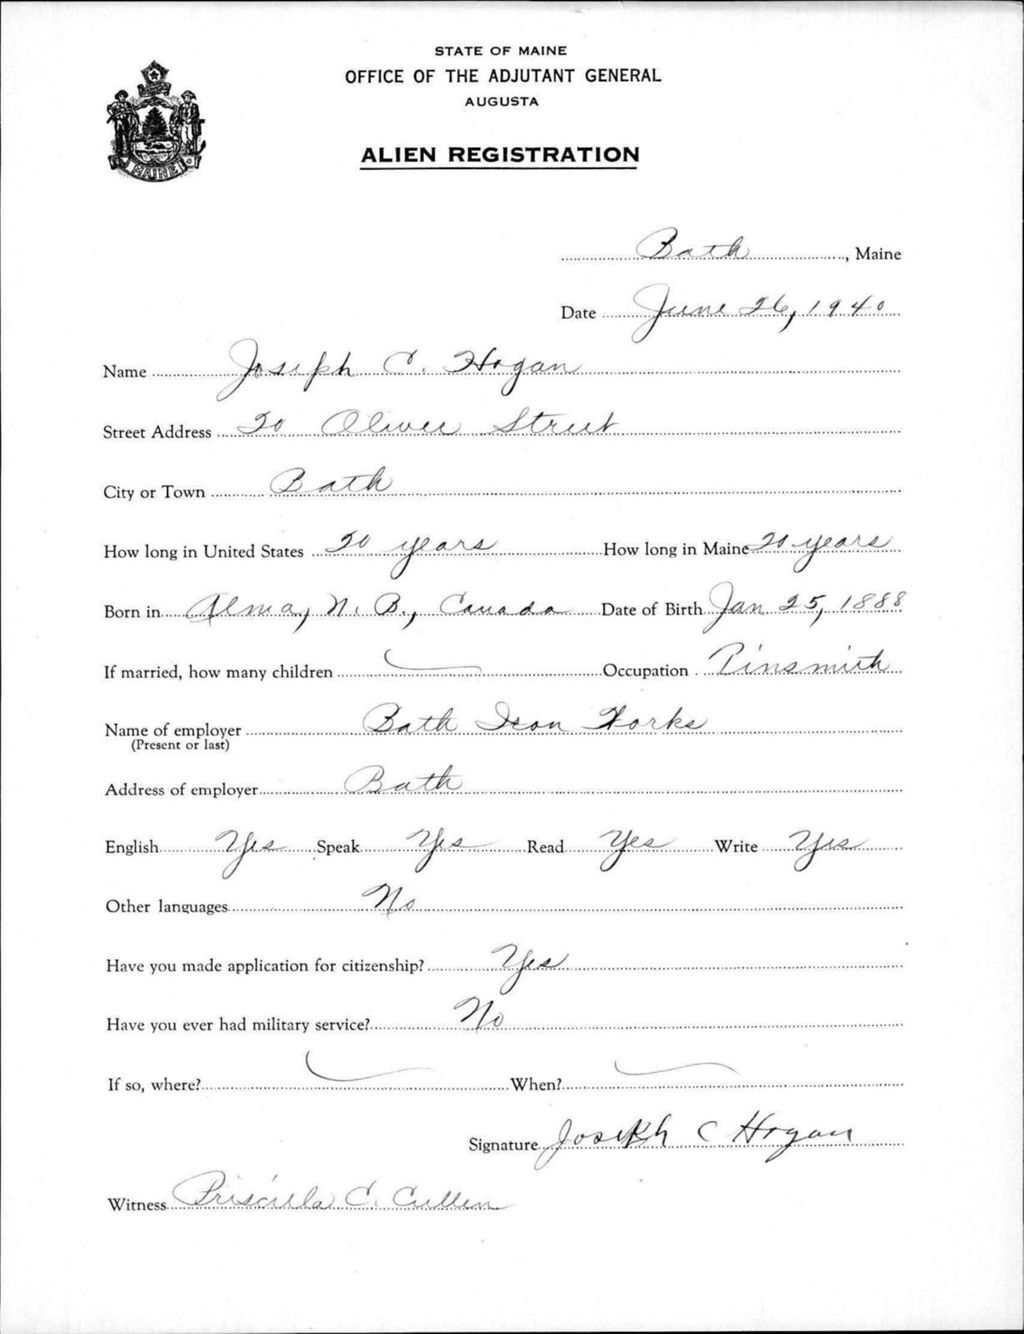 STATE OF MAINE
OFFICE OF THE ADJUTANT GENERAL
AUGUSTA
ALIEN REGISTRATION
MAINE
Bath, Maine
Date June 26, 1940
Name Joseph C. Hogan
Street Address 20 Oliver Street
City or Town Bath
How long in United States 20 years How long in Maine 20 years
Born in Alma, N. B., Canada Date of Birth Jan 25, 1888
If married, how many children Occupation Tinsmith
Name of employer Bath Iron Works
(Present or last)
Address of employer Bath
English Yes Speak Yes Read Yes Write Yes
Other languages No
Have you made application for citizenship? Yes
Have you ever had military service? No
If so, where? When?
Signature Joseph C Hogan
Witness Priscilla C. Cullen